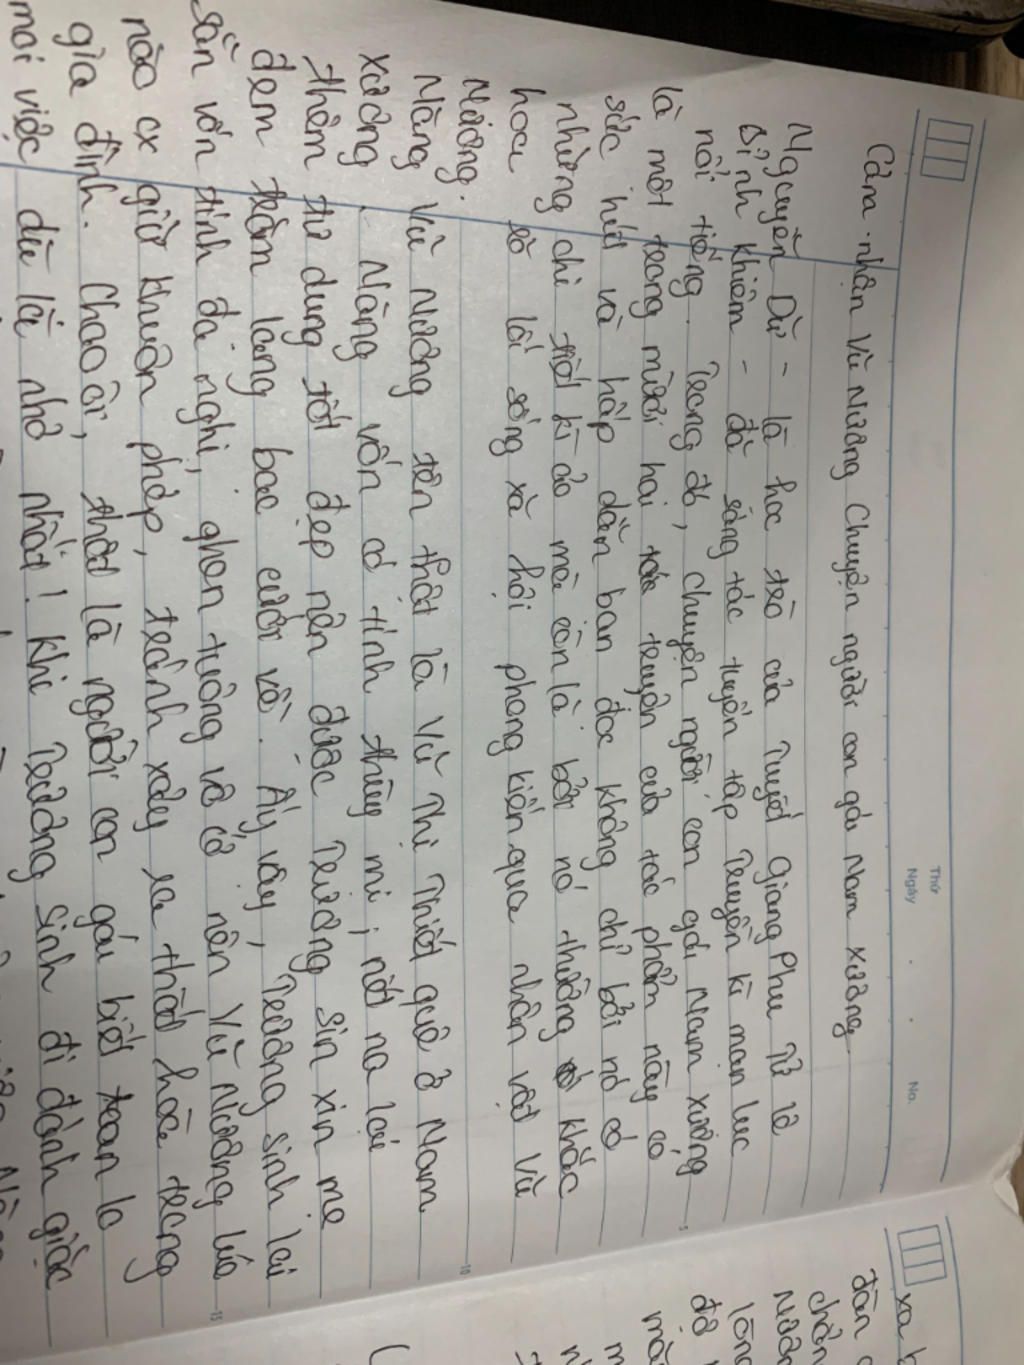 Thứ
Ngày . . No.
Cảm nhận Vũ Nương Chuyện người con gái Nam Xương
Nguyễn Dữ - là học trò của Tuyết Giang Phu Tử là
Bỉnh Khiêm - đã sáng tác tuyển tập Truyền kì mạn lục
nổi tiếng. Trong đó, chuyện người con gái Nam Xương
5
là một trong mười hai truyện của tác phẩm này có
sức hút và hấp dẫn bạn đọc không chỉ bởi nó có
những chi tiết kì ảo mà còn là bởi nó thường khắc
hoạ rõ lối sống xã hội phong kiến qua nhân vật Vũ
Nương.
10
Nàng Vũ Nương tên thật là Vũ Thị Thiết quê ở Nam
Xương. Nàng vốn có tính thùy mị, nết na lại
thêm tư dung tốt đẹp nên được Trương sin xin mẹ
đem trăm lạng bạc cưới về. Ấy vậy, Trương Sinh lại
sẵn vốn tính đa nghi, ghen tuông vô cớ nên Vũ Nương lúc
15
nào cx giữ khuôn phép, tránh xảy ra thất hòa trong
gia đình. Chao ôi, thật là người con gái biết toan lo
mọi việc dù là nhỏ nhất! Khi Trương Sinh đi đánh giặc
xa
đàn
chồn
Nươn
lòng
đỡ